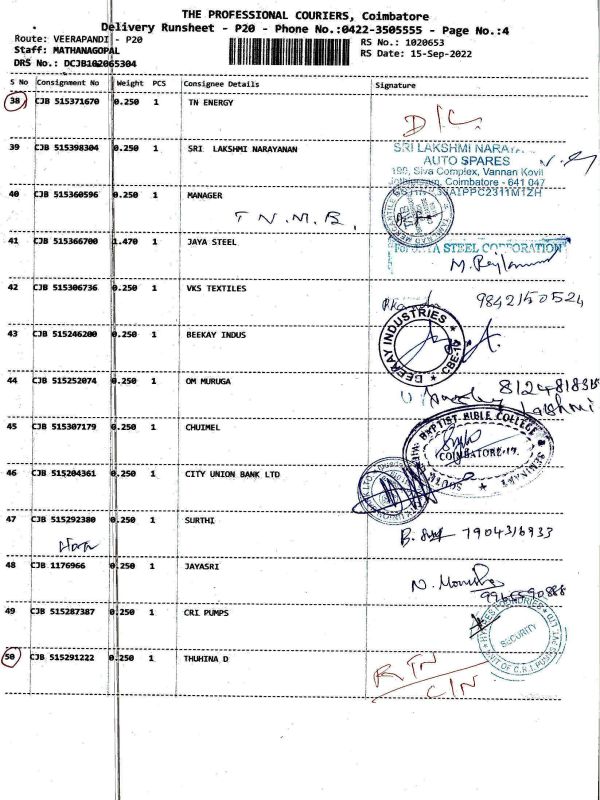 THE PROFESSIONAL COURIERS, Coimbatore
Delivery Runsheet - P20 - Phone No.:0422-3505555 - Page No.:4
Route: VEERAPANDI - P20
RS No.: 1020653
Staff: MATHANAGOPAL
RS Date: 15-Sep-2022
DRS No.: DCJB102065304
S No Consignment No Weight PCS Consignee Details Signature
38 CJB 515371670 0.250 1 TN ENERGY
D/C.
39 CJB 515398304 0.250 1 SRI LAKSHMI NARAYANAN
SRI LAKSHMI NARAYA
AUTO SPARES
199, Siva Complex, Vannan Kovil
Coimbatore - 641 047
40 CJB 515360596 0.250 1 MANAGER
T N. M. B.
41 CJB 515366700 1.470 1 JAYA STEEL
STEEL CORPORATION
42 CJB 515306736 0.250 1 VKS TEXTILES
9842150524
43 CJB 515246200 0.250 1 BEEKAY INDUS
BEEKAY INDUSTRIES
CBE-17
44 CJB 515252074 0.250 1 OM MURUGA
Lakshmi
45 CJB 515307179 0.250 1 CHUIMEL
BAPTIST BIBLE COLLEGE & SEMINARY
SOUTH
COIMBATORE-17.
46 CJB 515204361 0.250 1 CITY UNION BANK LTD
47 CJB 515292380 0.250 1 SURTHI
7904316933
48 CJB 1176966 0.250 1 JAYASRI
49 CJB 515287387 0.250 1 CRI PUMPS
SECURITY
UNIT OF C.R.I. PUMPS PVT. LTD
50 CJB 515291222 0.250 1 THUHINA D
RTN
C/N